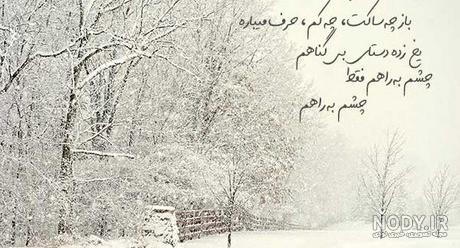 باز چه ساکت، چه کم، حرف میباره
یخ زده دستای بی گناهم
چشم به راهم فقط
چشم به راهم
NODY.IR